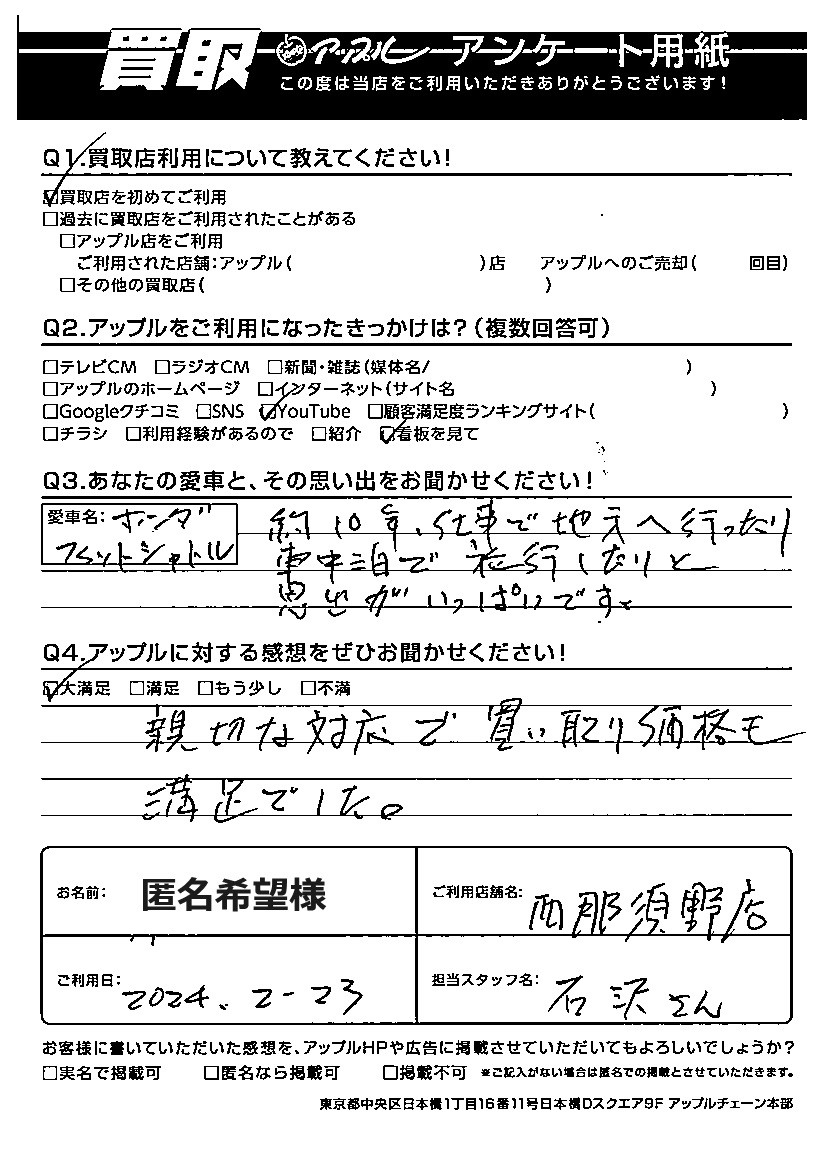 買取 アップル アンケート用紙
この度は当店をご利用いただきありがとうございます!
Q1.買取店利用について教えてください!
☑買取店を初めてご利用
□過去に買取店をご利用されたことがある
□アップル店をご利用
ご利用された店舗:アップル( )店 アップルへのご売却( 回目)
□その他の買取店( )
Q2.アップルをご利用になったきっかけは?(複数回答可)
□テレビCM □ラジオCM □新聞・雑誌(媒体名/ )
□アップルのホームページ □インターネット(サイト名 )
□Googleクチコミ □SNS ☑YouTube □顧客満足度ランキングサイト( )
□チラシ □利用経験があるので □紹介 ☑看板を見て
Q3.あなたの愛車と、その思い出をお聞かせください!
愛車名:ホンダ
フィットシャトル
約10年、仕事で地方へ行ったり
車中泊で旅行したりと
思出がいっぱいです。
Q4.アップルに対する感想をぜひお聞かせください!
☑大満足 □満足 □もう少し □不満
親切な対応で買い取り価格も
満足でした。
お名前: 匿名希望様
ご利用店舗名: 西那須野店
ご利用日: 2024.2-23
担当スタッフ名: 石沢さん
お客様に書いていただいた感想を、アップルHPや広告に掲載させていただいてもよろしいでしょうか?
□実名で掲載可 □匿名なら掲載可 □掲載不可 ※ご記入がない場合は匿名での掲載とさせていただきます。
東京都中央区日本橋1丁目16番11号日本橋Dスクエア9F アップルチェーン本部